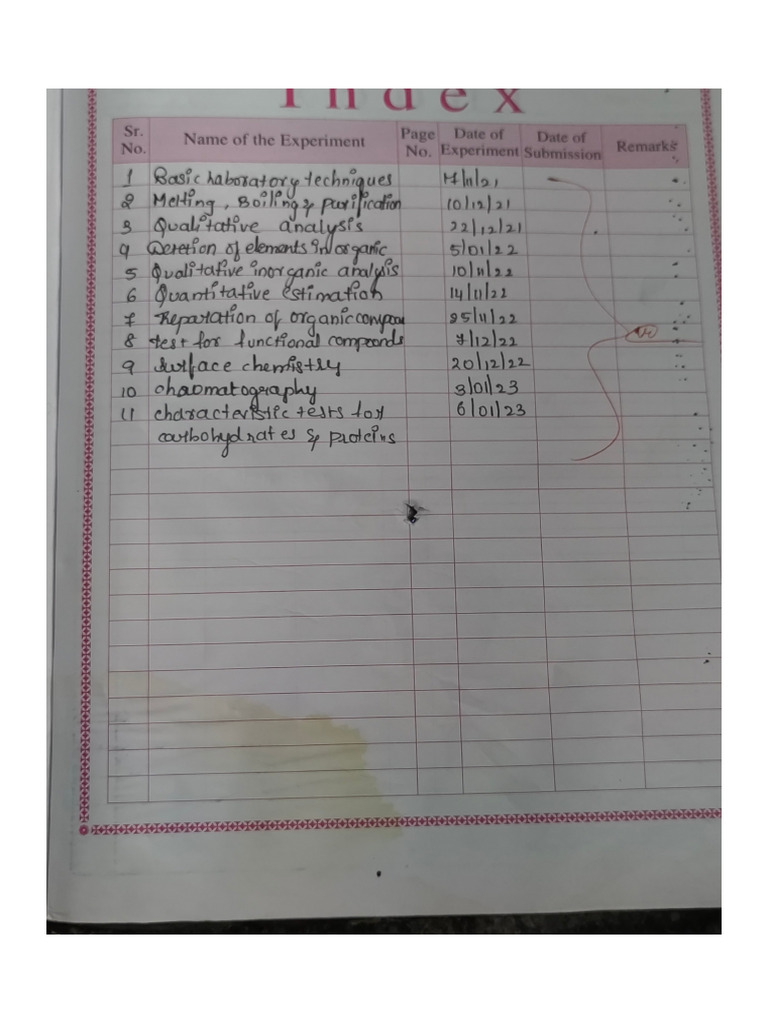 Index
Sr. No. Name of the Experiment Page No. Date of Experiment Date of Submission Remarks
1 Basic laboratory techniques 17/11/21
2 Melting, Boiling & purification 10/12/21
3 Qualitative analysis 22/12/21
4 Deretion of elements in organic 5/01/22
5 Qualitative inorganic analysis 10/11/22
6 Quantitative estimation 14/11/22
7 Reparation of organic compoun 25/11/22
8 test for functional compounds 7/12/22
9 surface chemistry 20/12/22
10 chaomatography 3/01/23
11 characteristic tests for 6/01/23
carbohydrates & proteins